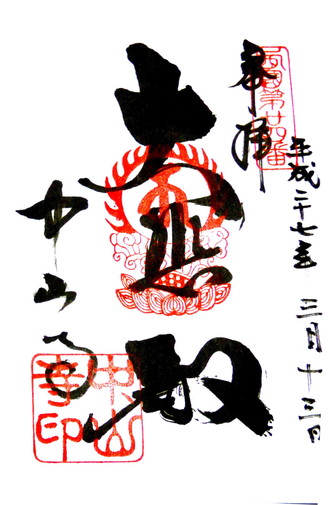 奉拝
西国第廿四番
平成二十七年 三月十三日
大悲殿
中山寺
中山
寺印